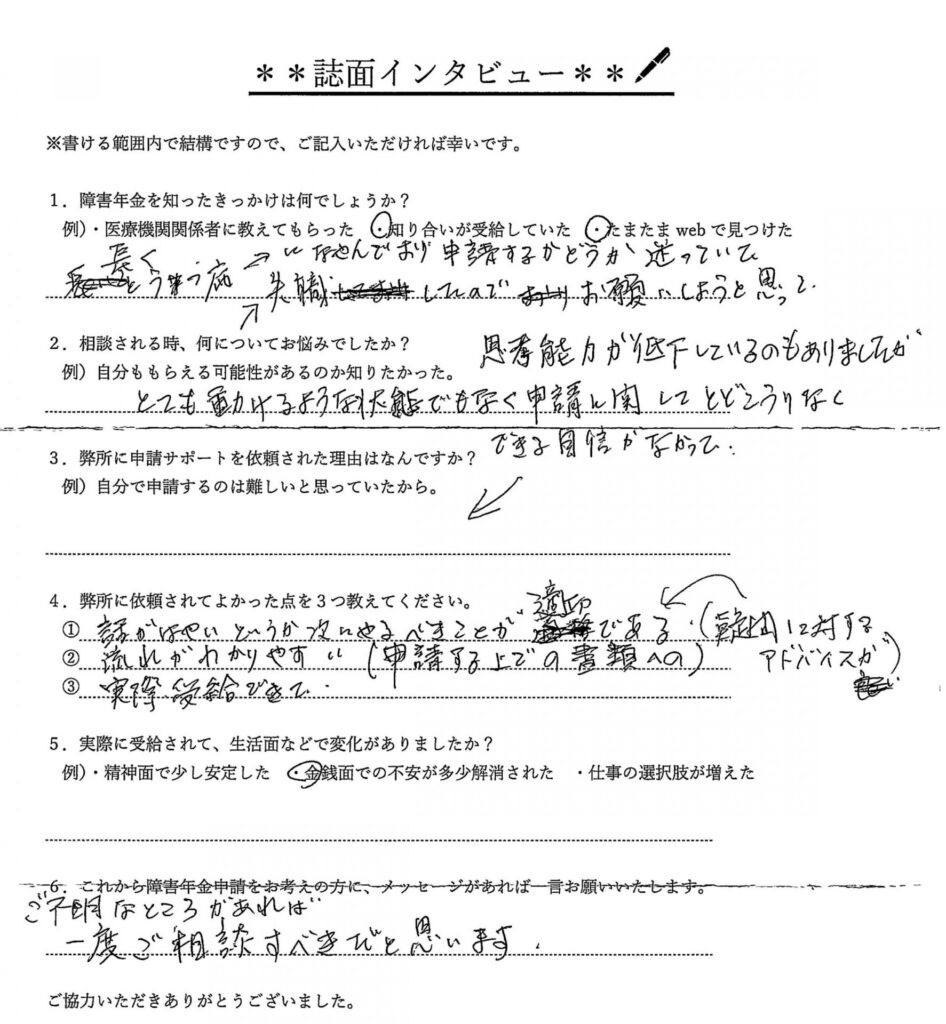 ＊＊誌面インタビュー＊＊
※書ける範囲内で結構ですので、ご記入いただければ幸いです。
１．障害年金を知ったきっかけは何でしょうか？
例）・医療機関関係者に教えてもらった ・知り合いが受給していた ・たまたま web で見つけた
長く
うつ病
になやんでおり申請するかどうか迷っていて
失職したのでお願いしようと思って.
２．相談される時、何についてお悩みでしたか？
例）自分ももらえる可能性があるのか知りたかった。
思考能力が低下しているのもありましたが
とても動けるような状態でもなく申請に関してとどこうりなく
できる自信がなかって.
３．弊所に申請サポートを依頼された理由はなんですか？
例）自分で申請するのは難しいと思っていたから。
４．弊所に依頼されてよかった点を３つ教えてください。
① 話がはやいというか次にやるべきことが適切である.(書類に対するアドバイスが)
② 流れがわかりやすい(申請する上での書類への)
③ 実際受給できて.
５．実際に受給されて、生活面などで変化がありましたか？
例）・精神面で少し安定した ・金銭面での不安が多少解消された ・仕事の選択肢が増えた
６．これから障害年金申請をお考えの方に、メッセージがあれば一言お願いいたします。
ご不明なところがあれば
一度ご相談すべきだと思います.
ご協力いただきありがとうございました。